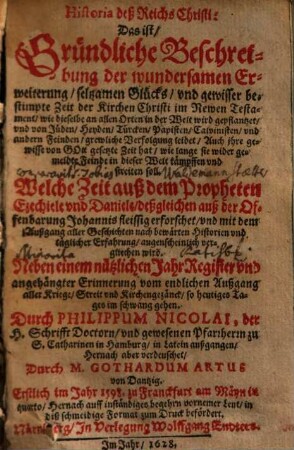 Historia deß Reichs Christi:
Das ist/
Gründliche Beschrei-
bung der wundersamen Er-
weiterung / seltzamen Glücks / vnd gewisser be-
stimpte Zeit der Kirchen Christi im Newen Testa-
ment / wie dieselbe an allen Orten in der Welt wird gepflantzet/
vnd von Jüden / Heyden / Türcken / Papisten / Calvinisten / vnd
andern Feinden / grewliche Verfolgung leidet / Auch ihre ge-
wisse von Gott gesetzte Zeit hat / wie lange sie wider ge-
meldte Feinde in dieser Welt kämpffen vnd
streiten soll
Welche Zeit auß dem Propheten
Ezechiele vnd Daniele / deßgleichen auß der Of-
fenbarung Johannis fleissig erforschet / vnd mit dem
Außgang aller Geschichten nach bewärten Historien vnd
täglicher Erfahrung / augenscheinlich ver-
glichen wird.
Neben einem nützlichen Jahr Register vnd
angehängter Erinnerung vom endlichen Außgang
aller Kriege / Streit vnd Kirchengezänck / so heutiges Ta-
ges im schwang gehen.
Durch PHILIPPUM NICOLAI, der
H. Schrifft Doctorn / vnd gewesenen Pfarrherrn zu
S. Catharinen in Hamburg / in Latein außgangen /
Hernach aber verdeutschet /
Durch M. GOTHARDUM ARTUS
von Dantzig.
Erstlich im Jahr 1598. zu Franckfurt am Mäyn in
quarto / Hernach auff inständiges begehrn vornemer Leut / in
diß schmeidige Format zum Druck befördert.
Nürnberg / In Verlegung Wolffgang Endters.
Im Jahr / 1628.